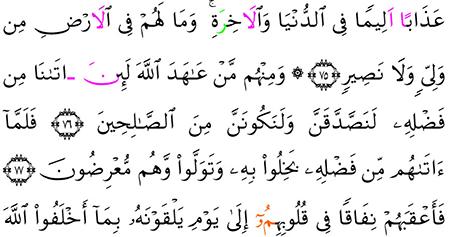 عَذَابًا اَلِيمًا فِى ٱلدُّنْيَا وَٱلَاخِرَةِ ۚ وَمَا لَهُمْ فِى ٱلَارْضِ مِن
وَلِىٍّ وَلَا نَصِيرٍ ٧٥ ۞ وَمِنْهُم مَّنْ عَٰهَدَ ٱللَّهَ لَئِنَ ـاتَىٰنَا مِن
فَضْلِهِۦ لَنَصَّدَّقَنَّ وَلَنَكُونَنَّ مِنَ ٱلصَّٰلِحِينَ ٧٦ فَلَمَّآ
ءَاتَىٰهُم مِّن فَضْلِهِۦ بَخِلُوا۟ بِهِۦ وَتَوَلَّوا۟ وَّهُم مُّعْرِضُونَ ٧٧
فَأَعْقَبَهُمْ نِفَاقًا فِى قُلُوبِهِمُۥٓ إِلَىٰ يَوْمِ يَلْقَوْنَهُۥ بِمَآ أَخْلَفُوا۟ ٱللَّهَ